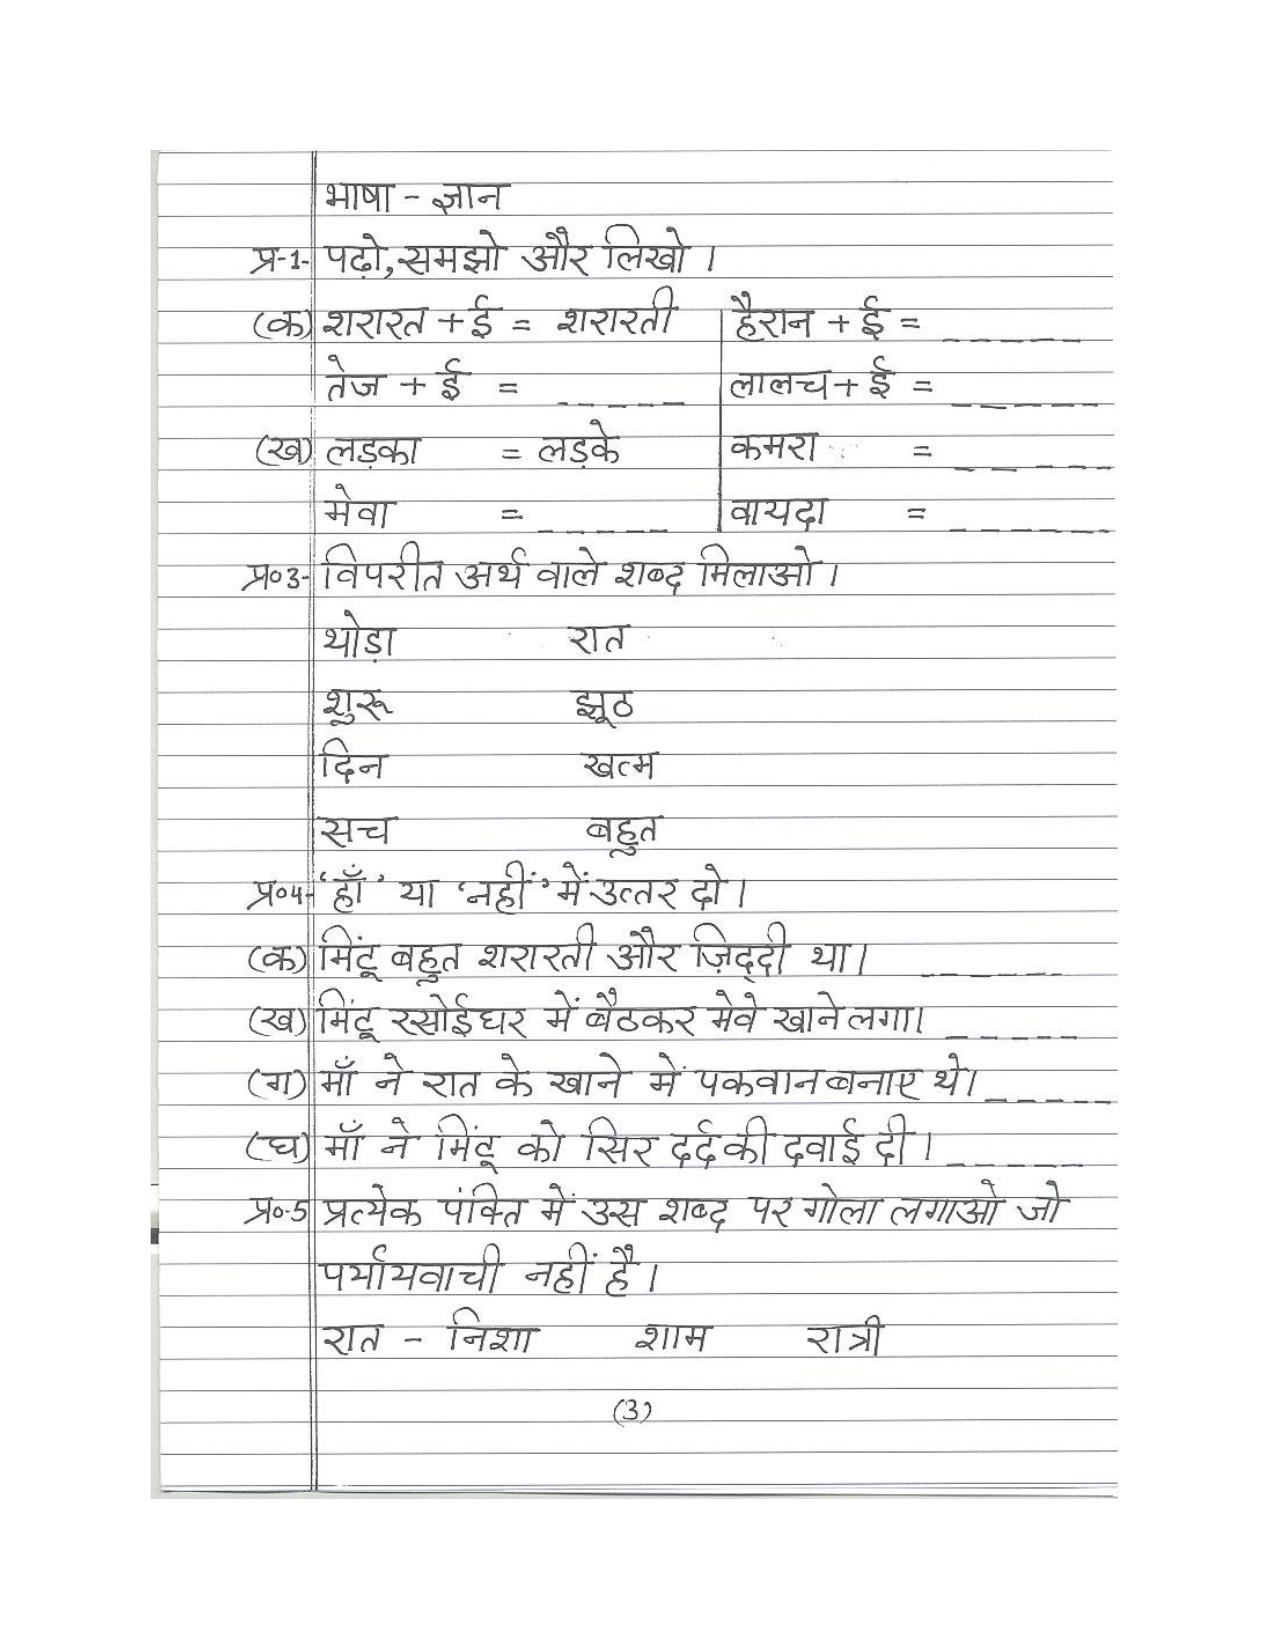 भाषा - ज्ञान
प्र-1- पढ़ो, समझो और लिखो ।
(क) शरारत + ई = शरारती | हैरान + ई = _ _ _ _ _
तेज + ई = _ _ _ _ _ | लालच + ई = _ _ _ _ _
(ख) लड़का = लड़के | कमरा = _ _ _ _ _
मेवा = _ _ _ _ _ | वायदा = _ _ _ _ _
प्र॰3- विपरीत अर्थ वाले शब्द मिलाओ ।
थोड़ा रात
शुरू झूठ
दिन खत्म
सच बहुत
प्र॰4- 'हाँ' या 'नहीं' में उत्तर दो ।
(क) मिंटू बहुत शरारती और ज़िद्दी था । _ _ _ _ _
(ख) मिंटू रसोईघर में बैठकर मेवे खाने लगा । _ _ _ _ _
(ग) माँ ने रात के खाने में पकवान बनाए थे । _ _ _ _ _
(घ) माँ ने मिंटू को सिर दर्द की दवाई दी । _ _ _ _ _
प्र॰-5 प्रत्येक पंक्ति में उस शब्द पर गोला लगाओ जो
पर्यायवाची नहीं है ।
रात - निशा शाम रात्री
(3)